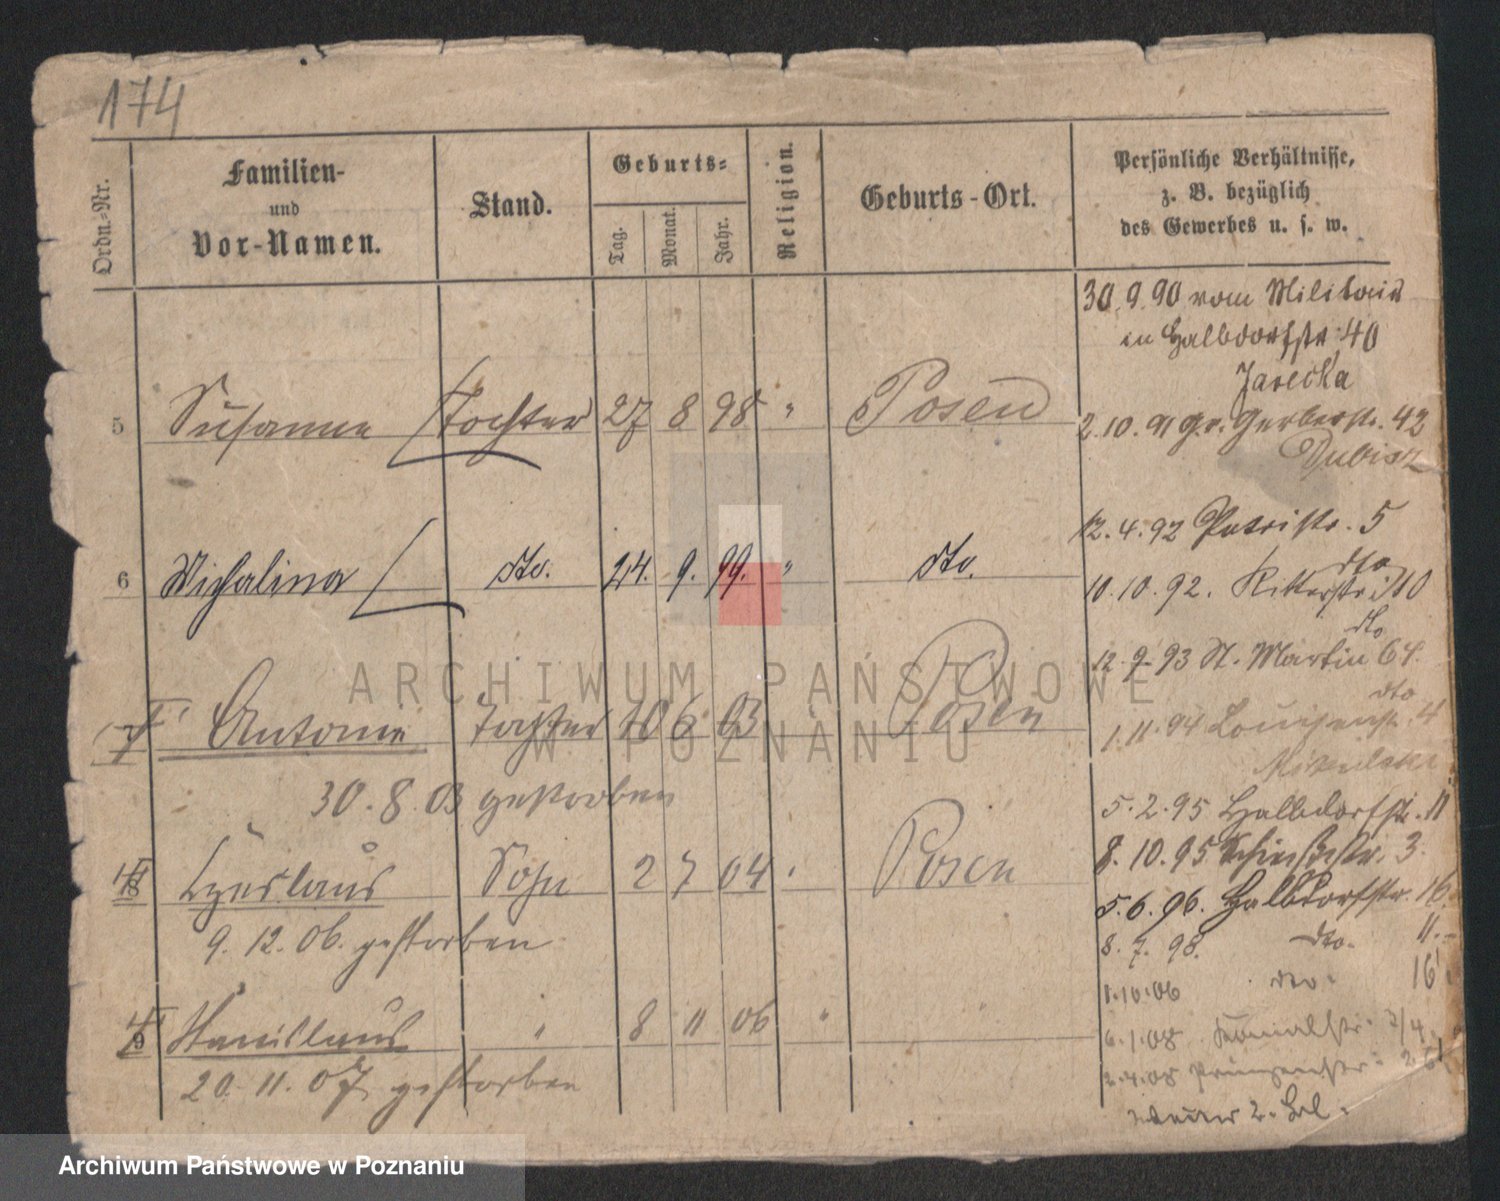 174
Ordn.-Nr.
Familien-
und
Vor-Namen.
Stand.
Geburts-
Tag.
Monat.
Jahr.
Religion.
Geburts-Ort.
Persönliche Verhältnisse,
z. B. bezüglich
des Gewerbes u. s. w.
30.9.90 vom Militair
in Halbdorfstr. 40
Jarecka
5 Susanne Tochter 27 8 98 " Posen
2.10.91 gr. Gerberstr. 42
Dubisz
12.4.92 Petristr. 5
dto
6 Michalina dto. 24. 9. 99. " dto.
10.10.92. Ritterstr. 10
dto
12.9.93 St. Martin 64.
dto
7 Antonie Tochter 10 6 03 Posen
1.11.94 Louisenstr. 4
30.8.03 gestorben
5.2.95 Halbdorfstr. 11
8.10.95 Schießstr. 3.
8 Czeslaus Sohn 2 7 04 " Posen
5.6.96. Halbdorfstr. 16.
9.12.06. gestorben
8.7.98. dto. 11.-
1.10.06 dto. 16
9 Stanislaus " 8 11 06 "
6.1.08 Kanalstr. 3/4
20.11.07 gestorben
2.4.08